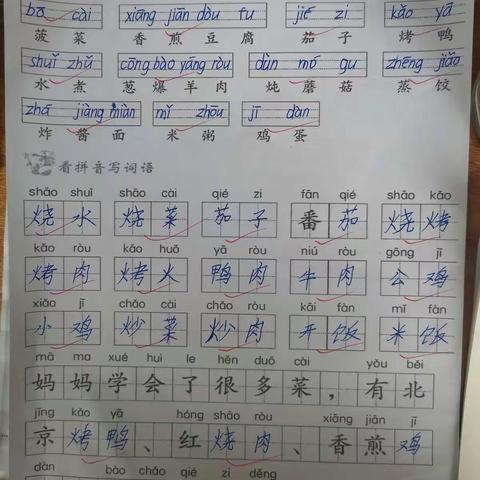 bō cài xiāng jiān dòu fu jié zi kǎo yā
菠菜 香煎豆腐 茄子 烤鸭
shuǐ zhǔ cōng bào yáng ròu dùn mó gu zhēng jiǎo
水煮 葱爆羊肉 炖蘑菇 蒸饺
zhá jiàng miàn mǐ zhōu jī dàn
炸酱面 米粥 鸡蛋
看拼音写词语
shāo shuǐ shāo cài qié zi fān qié shāo kǎo
烧水 烧菜 茄子 番茄 烧烤
kǎo ròu kǎo huǒ yā ròu niú ròu gōng jī
烤肉 烤火 鸭肉 牛肉 公鸡
xiǎo jī chǎo cài chǎo ròu kāi fàn mǐ fàn
小鸡 炒菜 炒肉 开饭 米饭
mā ma xué huì le hěn duō cài yǒu běi
妈妈学会了很多菜，有北
jīng kǎo yā hóng shāo ròu xiāng jiān jī
京烤鸭、红烧肉、香煎鸡
dàn bào chǎo qié zi děng